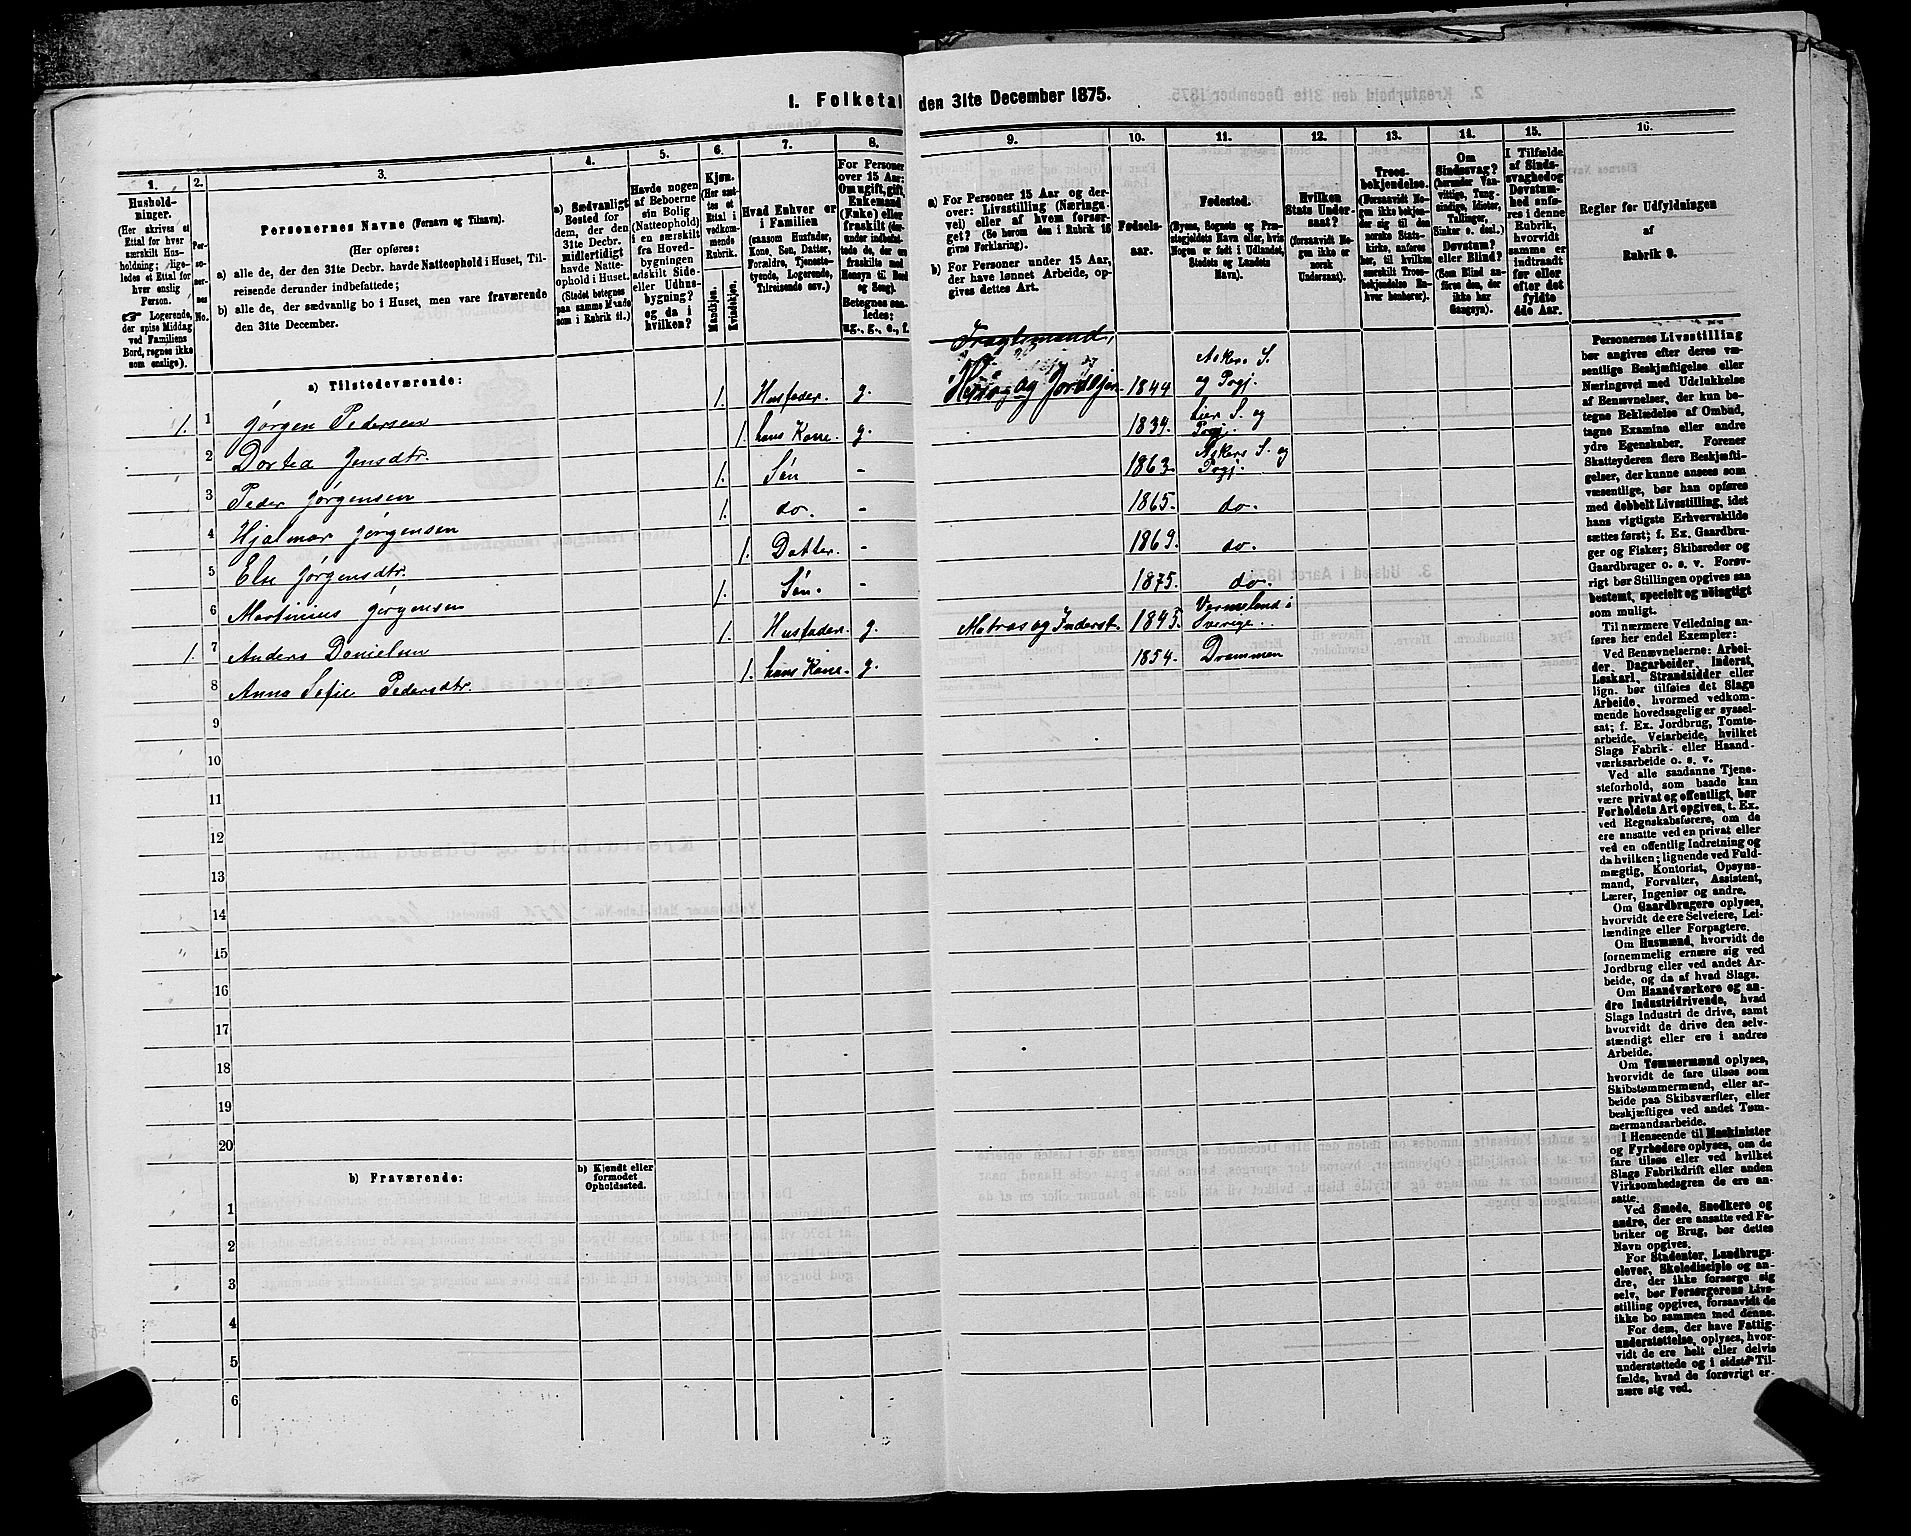 1. Folketal den 31te December 1875.
1.
Husholdninger.
(Her skrives et
Ettal for hver
særskilt Husholdning; ligeledes et Ettal for
hver enslig
Person.
☛ Logerende,
der spise Middag
ved Familiens
Bord, regnes ikke
som enslige).
2.
Personernes
No.
3.
Personernes Navne (Fornavn og Tilnavn).
(Her opføres:
a) alle de, der den 31te Decbr. havde Natteophold i Huset, Tilreisende derunder indbefattede;
b) alle de, der sædvanlig bo i Huset, men vare fraværende
den 31te December.
4.
a) Sædvanligt
Bosted for
dem, der den
31te Decbr.
midlertidigt
havde Natteophold i Huset.
(Stedet betegnes
paa samme Maade
som i Rubrik 11.)
5.
Havde nogen
af Beboerne
sin Bolig
(Natteophold)
i en særskilt
fra Hovedbygningen
adskilt Side-
eller Udhusbygning?
og da i
hvilken?
6.
Kjøn.
(Her sættes et
Ettal i
vedkommende
Rubrik.
Mandkjøn.
Kvindekjøn.
7.
Hvad Enhver er
i Familien
(saasom Husfader,
Kone, Søn, Datter,
Forældre, Tjenestetyende, Logerende,
Tilreisende osv.)
8.
For Personer
over 15 Aar:
Om ugift, gift,
Enkemand
(Enke) eller
fraskilt
Betegnes saaledes:
ug., g., e., f.
9.
a) For Personer 15 Aar og derover: Livsstilling (Næringsvei) eller af hvem forsørget? (Se herom den i Rubrik 16
givne Forklaring).
b) For Personer under 15 Aar,
der have lønnet Arbeide, opgives dettes Art.
10.
Fødselsaar.
11.
Fødested.
(Byens, Sognets og Præstegjeldets Navn eller, hvis
Nogen er født i Udlandet,
Stedets og Landets
Navn).
12.
Hvilken
Stats Undersaat?
(forsaavidt Nogen ikke er
norsk
Undersaat).
13.
Troesbekjendelse.
(Forsaavidt Nogen ikke bekjender sig til den
norske Statskirke, anføres
her, til hvilken
særskilt Troesbekjendelse Enhver henhører).
14.
Om
Sindssvag?
(herunder Vanvittige, Tungsindige, Idioter,
Tullinger,
Sinker o. desl.)
Døvstum?
eller Blind?
(Som Blind anføres den, der
ikke har
Gangsyn).
15.
I Tilfælde
af Sindssvaghed og
Døvstumhed anføres i denne
Rubrik,
hvorvidt
samme er
indtraadt
før eller
efter det
fyldte
4de Aar.
16.
Regler før Udfyldningen
af
Rubrik 9.
a) Tilstedeværende:
1. 1 Jørgen Pedersen 1. Husfader. g. 1844 Askers S. og Pgj.
2 Dortea Jensdtr. 1. hans Kone. g. 1839. Lier S. og Pgj.
3 Peder Jørgensen 1. Søn - 1863. Askers S. og Pgj.
4 Hjalmar Jørgensen 1. do. - 1865. do.
5 Else Jørgensdtr. 1. Datter. - 1869. do.
6 Martinius Jørgensen 1. Søn. - 1875. do.
1. 7 Anders Danielsen 1. Husfader. g. Matros og Inderst. 1845. Vermeland i Sverige.
8 Anna Sofie Pedersdtr. 1. hans Kone. g. 1854. Drammen
9
10
11
12
13
14
15
16
17
18
19
20
b) Fraværende:
b) Kjendt eller
formodet
Opholdssted.
1
2
3
4
5
6
Personernes Livsstilling
bør angives efter deres væsentlige Beskjæftigelse eller
Næringsvei med Udelukkelse
af Benævnelser, der kun betegne Beklædelse af Ombud,
tagne Examina eller andre
ydre Egenskaber. Forener
Skatteyderen flere Beskjæftigelser, der kunne ansees som
væsentlige, bør han opføres
med dobbelt Livsstilling, idet
hans vigtigste Erhvervskilde
sættes først; f. Ex. Gaardbruger og Fisker; Skibsreder og
Gaardbruger o. s. v. Forøvrigt bør Stillingen opgives saa
bestemt, specielt og nøiagtigt
som muligt.
Til nærmere Veiledning anføres her endel Exempler:
Ved Benævnelserne: Arbeider, Dagarbeider, Inderst,
Løskarl, Strandsidder eller
lign. bør tilføies det Slags
Arbeide, hvormed vedkommende hovedsagelig er sysselsat; f. Ex. Jordbrug, Tomtearbeide, Veiarbeide, hvilket
Slags Fabrik- eller Haandværksarbeide o. s. v.
Ved alle saadanne Tjenesteforhold, som baade kan
være privat og offentligt, bør
Forholdets Art opgives, t. Ex.
ved Regnskabsførere, om de
ere ansatte ved en privat eller
ved en offentlig Indretning og
da hvilken; lignende ved Fuldmægtig, Kontorist, Opsynsmand, Forvalter, Assistent,
Lærer, Ingeniør og andre.
Om Gaardbrugere oplyses,
hvorvidt de ere Selveiere, Leilændinge eller Forpagtere.
Om Husmænd, hvorvidt de
fornemmelig ernære sig ved
Jordbrug eller ved andet Arbeide, og da af hvad Slags.
Om Haandværkere og andre Industridrivende, hvad
Slags Industri de drive, samt
hvorvidt de drive den selvstændigt eller ere i andres
Arbeide.
Om Tømmermænd oplyses,
hvorvidt de fare tilsøs som
Skibstømmermænd, eller arbeide paa Skibsværfter, eller
beskjæftiges ved andet Tømmermandsarbeide.
I Henseende til Maskinister
og Fyrbødere oplyses, om de
fare tilsøs eller ved hvilket
Slags Fabrikdrift eller anden
Virksomhedsgren de ere ansatte.
Ved Smede, Snedkere og
andre, der ere ansatte ved Fabriker og Brug, bør dettes
Navn opgives.
For Studenter, Landbrugselever, Skoledisciple og andre, der ikke forsørge sig
selv, bør Forsørgerens Livsstilling opgives, forsaavidt de
ikke bo sammen med denne.
For dem, der have Fattigunderstøttelse, oplyses, hvorvidt de ere helt eller delvis
understøttede og i sidste Tilfælde, hvad de forøvrigt ernære sig ved.